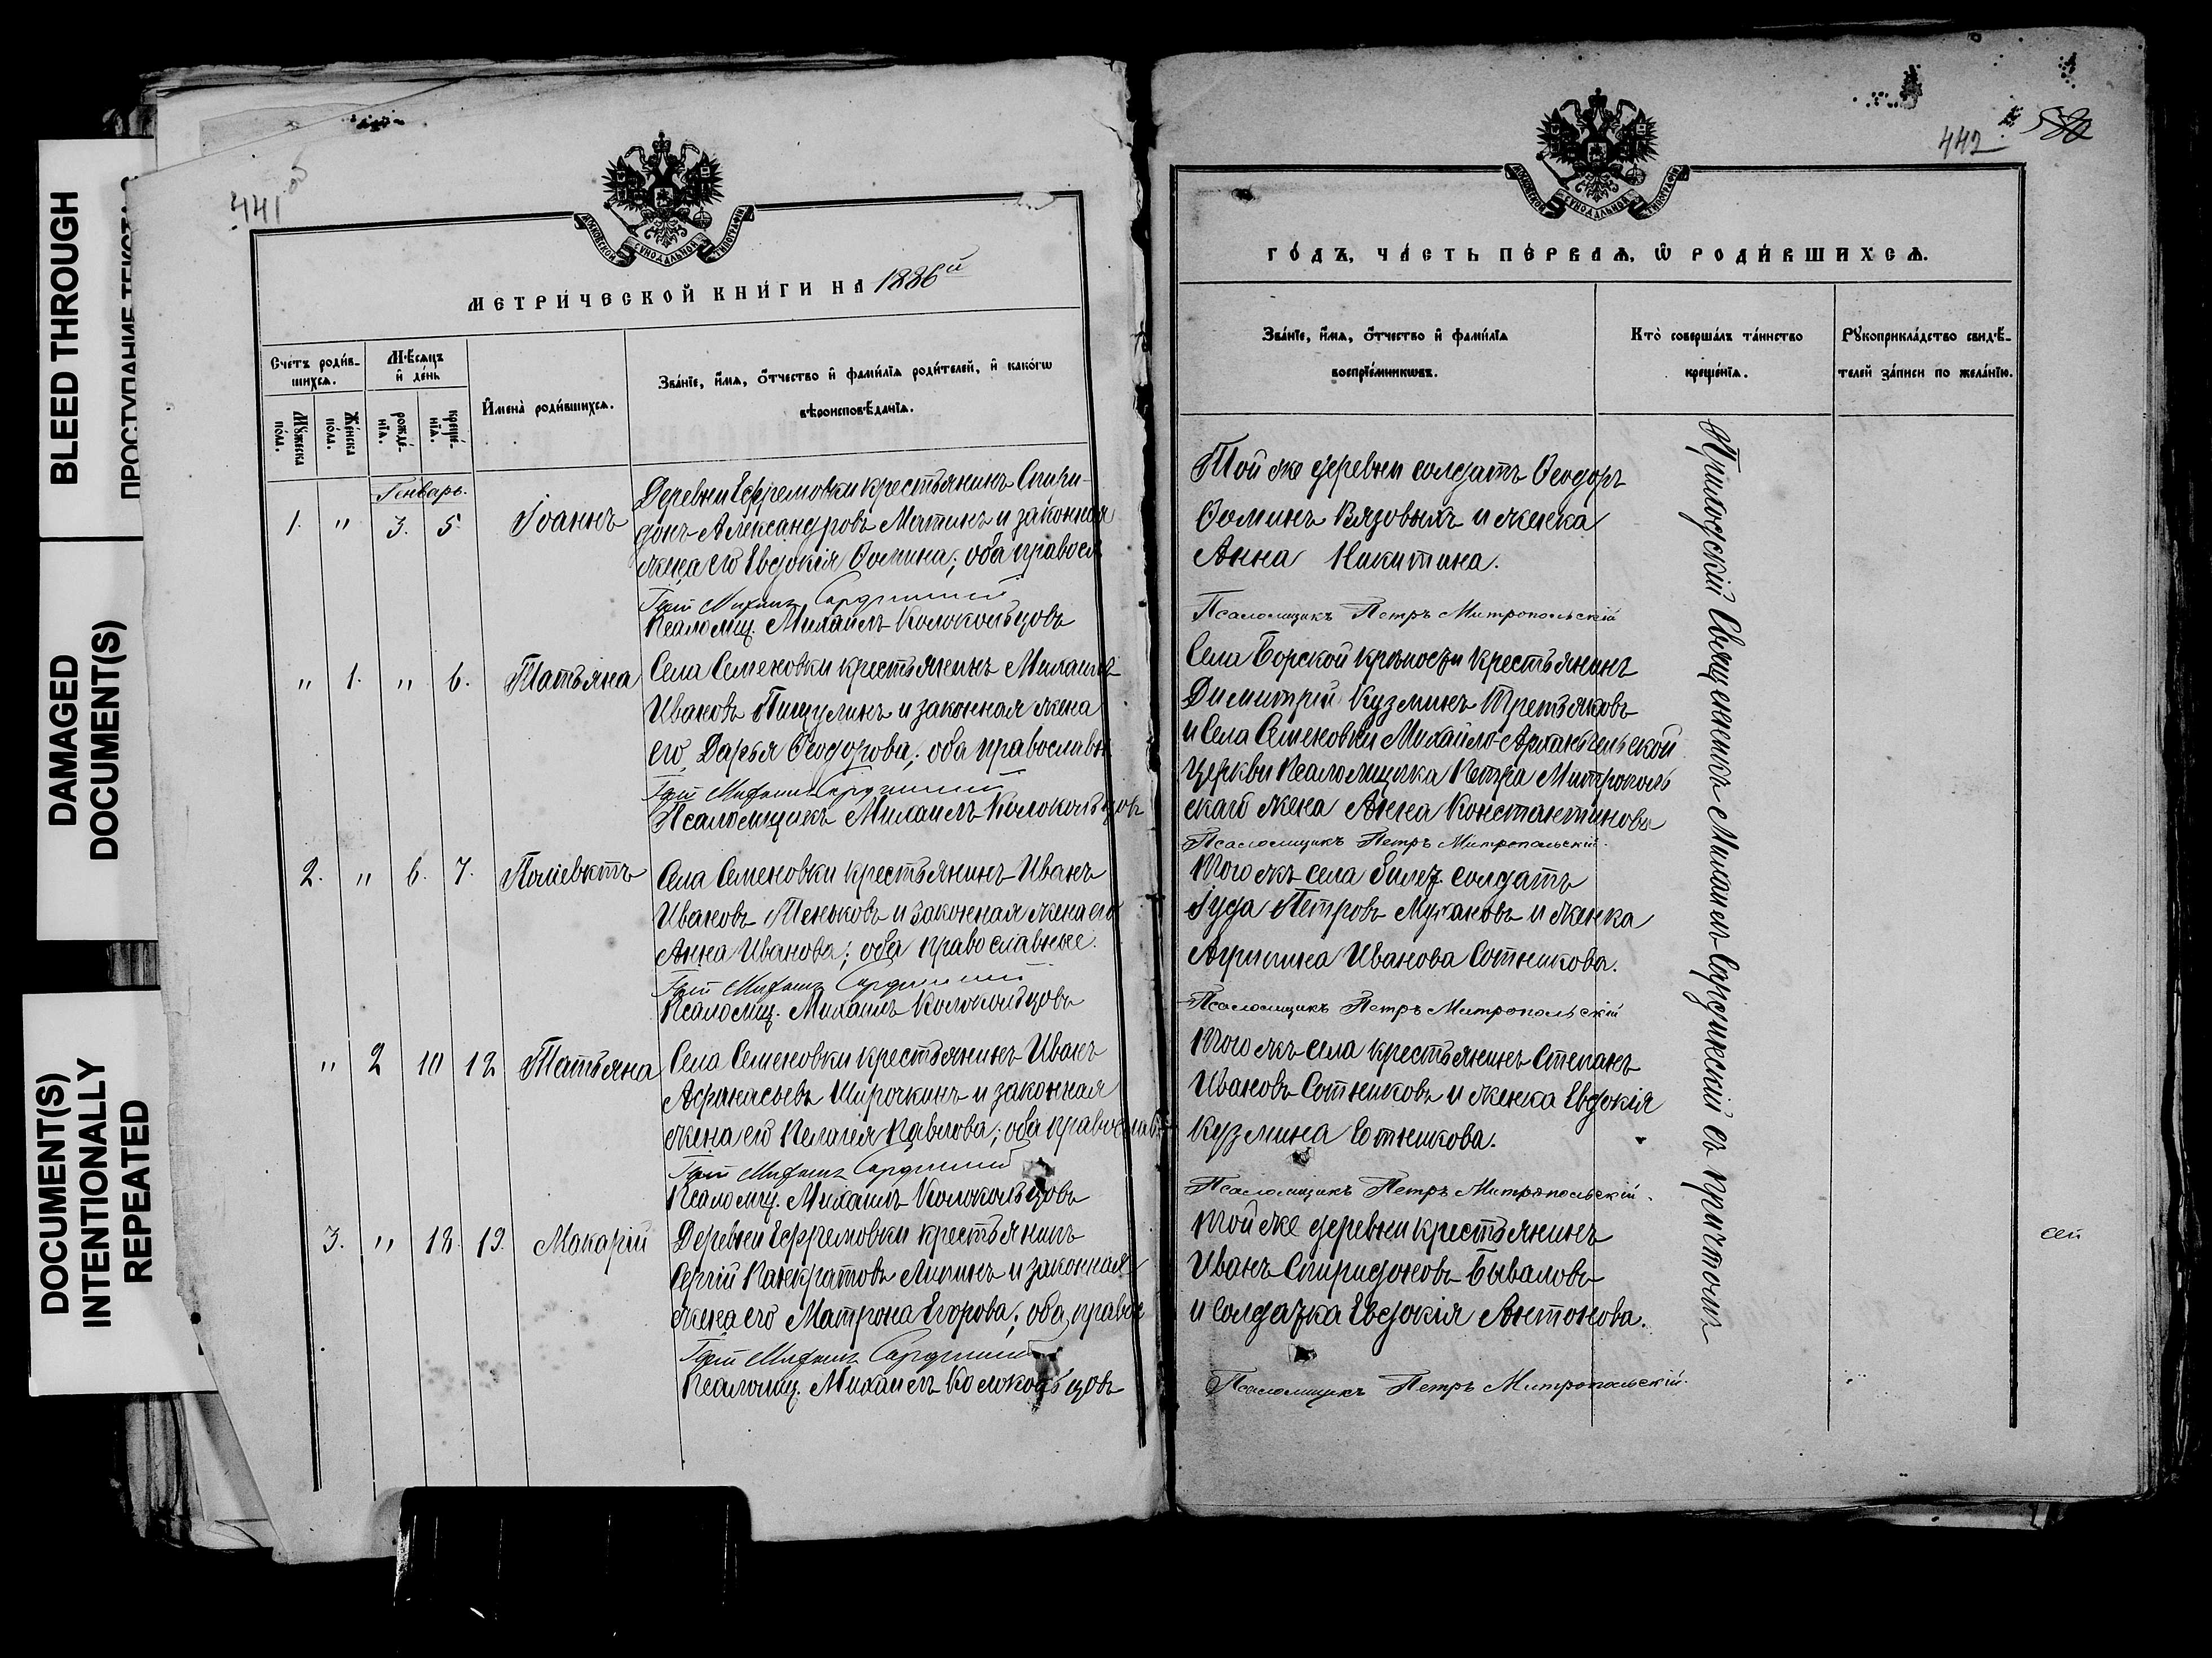 BLEED THROUGH
DAMAGED
DOCUMENT(S)
DOCUMENT(S)
INTENTIONALLY
REPEATED
441 об
МОСКОВСКОЙ СѴНОДАЛЬНОЙ ТИПОГРАФІИ
МЕТРИ́ЧЕСКОЙ КНИ́ГИ НА 1886й
Сче́тъ роди́в-
шихсѧ.
Мꙋ́жеска
по́ла.
Же́нска
по́ла.
Мѣ́сѧцъ
и҆ де́нь
рожде́-
нїѧ.
креще́-
нїѧ.
И҆мена̀ роди́вшихсѧ.
Зва́нїе, и҆́мѧ, ѻ҆́тчество и҆ фами́лїѧ роди́телей, и҆ како́гѡ
вѣроисповѣ́данїѧ.
Генварь.
1. " 3. 5. Іоаннъ
Деревни Ефремовки крестьянинъ Спири-
донъ Александровъ Мятинъ и законная
жена его Евдокія Ѳомина; оба правосл
Іерей Михаилъ Сардинскій
Псаломщ. Михаилъ Колокольцовъ
" 1. " 6. Татьяна
Села Семеновки крестьянинъ Михаилъ
Ивановъ Пищулинъ и законная жена
его Дарья Ѳеодорова; оба православн
Іерей Михаилъ Сардинскій
Псаломщикъ Михаилъ Колокольцовъ
2. " 6. 7. Поліевктъ
Села Семеновки крестьянинъ Иванъ
Ивановъ Теньковъ и законная жена его
Анна Иванова; оба православные.
Іерей Михаилъ Сардинскій
Псаломщ. Михаилъ Колокольцовъ
" 2 10 12 Татьяна
Села Семеновки крестьянинъ Иванъ
Афанасьевъ Широчкинъ и законная
жена его Пелагея Павлова; оба православ
Іерей Михаилъ Сардинскій
Псаломщ. Михаилъ Колокольцовъ
3. " 18. 19. Макарій
Деревни Ефремовки крестьянинъ
Сергій Панкратовъ Липинъ и законная
жена его Матрона Егорова; оба правос
Іерей Михаилъ Сардинскій
Псаломщ. Михаилъ Колокольцовъ
442
МОСКОВСКОЙ СѴНОДАЛЬНОЙ ТИПОГРАФІИ
ГО́ДЪ, ЧА́СТЬ ПЕ́РВАѦ, Ѡ҆ РОДИ́ВШИХСѦ.
Зва́нїе, и҆́мѧ, ѻ҆́тчество и҆ фами́лїѧ
воспрїе́мниковъ.
Кто̀ соверша́лъ та́инство
креще́нїѧ.
Рꙋкоприкла́дство свидѣ́-
телей за́писи по жела́нїю.
Той же деревни солдатъ Ѳеодоръ
Ѳоминъ Вязовыхъ и женка
Анна Никитина.
Псаломщикъ Петръ Митропольскій
Села Борской крѣпости крестьянинъ
Димитрій Кузминъ Третьяковъ
и Села Семеновки Михайло-Архангельской
церкви Псаломщика Петра Митрополь
скаго жена Анна Константинова
Псаломщикъ Петръ Митропольскій.
Того жъ села билет. солдатъ
Іуда Петровъ Мухановъ и женка
Агрипина Иванова Сотникова.
Псаломщикъ Петръ Митропольскій
Того жъ села крестьянинъ Степанъ
Ивановъ Сотниковъ и женка Евдокія
Кузмина Сотникова.
Псаломщикъ Петръ Митропольскій.
Той же деревни крестьянинъ
Иванъ Спиридоновъ Бываловъ
и солдатка Евдокія Антонова.
Псаломщикъ Петръ Митропольскій.
Приходскій Священникъ Михаилъ Сардинскій съ причтомъ